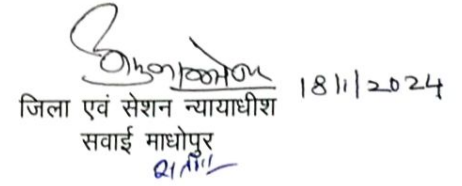 18/1/2024
जिला एवं सेशन न्यायाधीश
सवाई माधोपुर